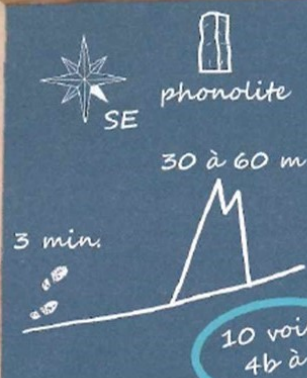 SE
phonolite
30 à 60 m
3 min.
10 voi
4b à